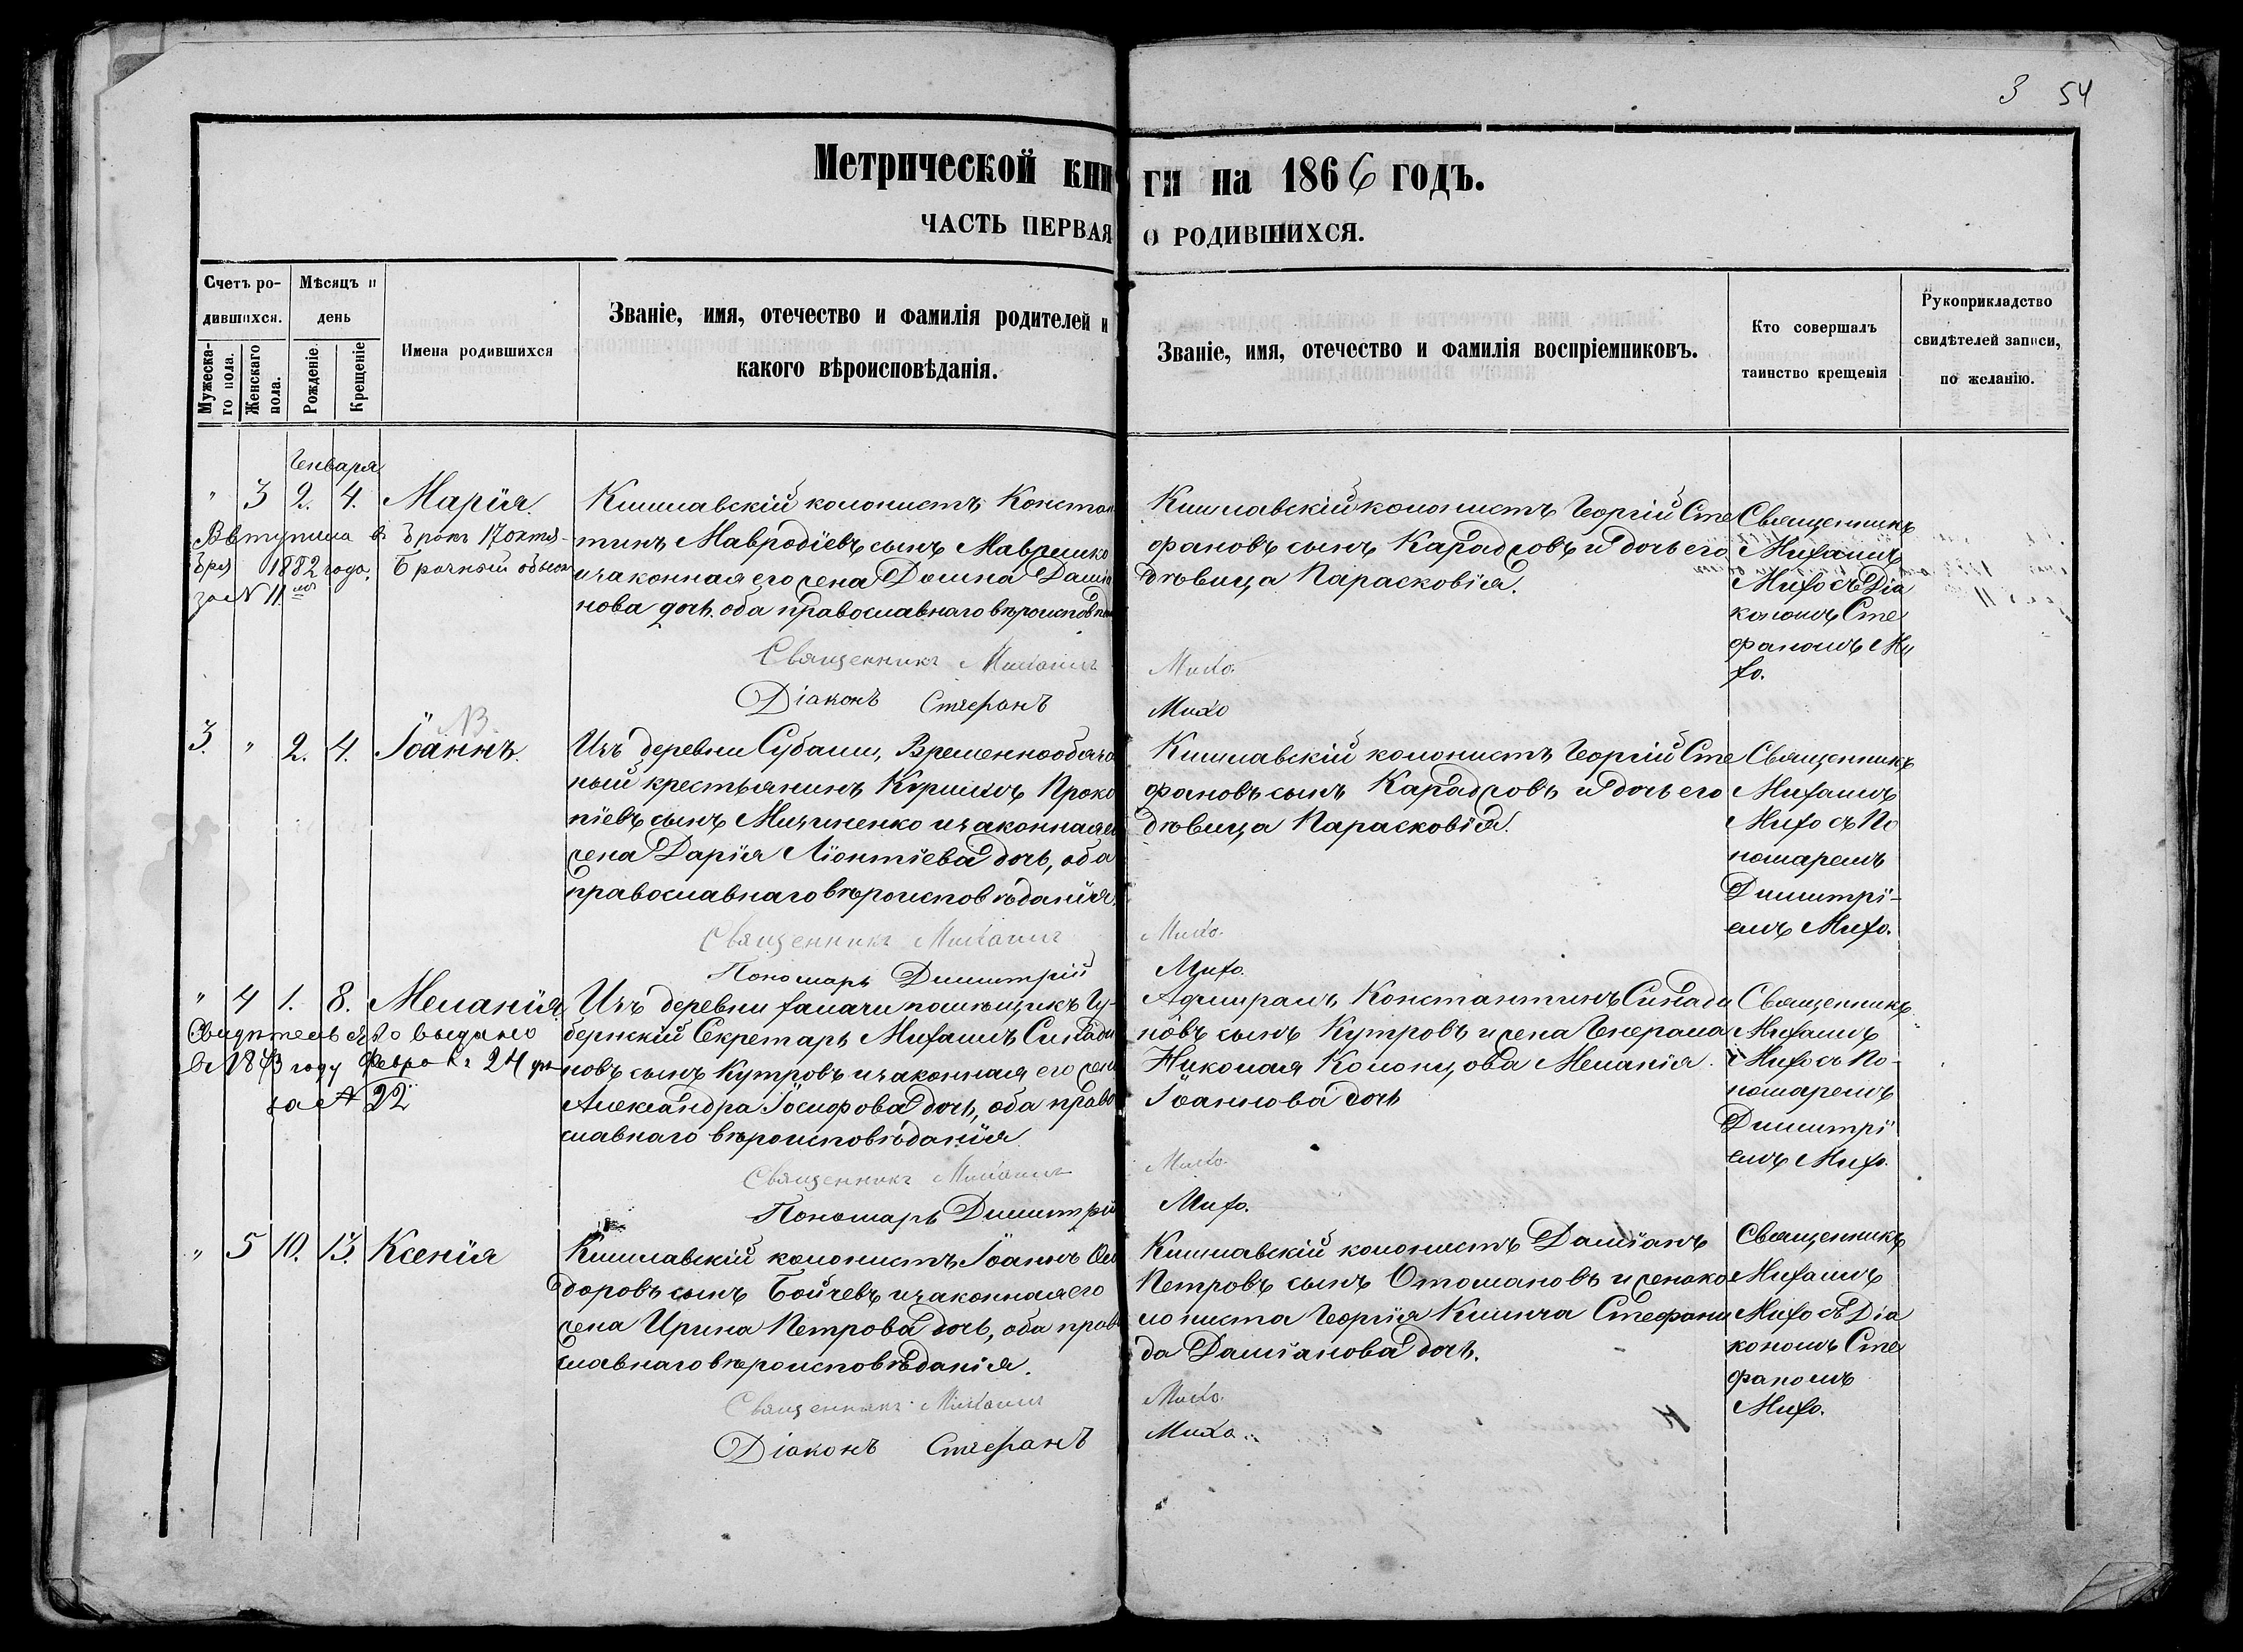 3 54
Метрической книги на 1866 годъ.
ЧАСТЬ ПЕРВАЯ О РОДИВШИХСЯ.
Счетъ родившихся.
Мужескаго пола.
Женскаго пола.
Мѣсяцъ и день
Рожденіе.
Крещеніе
Имена родившихся
Званіе, имя, отечество и фамилія родителей и
какого вѣроисповѣданія.
Званіе, имя, отечество и фамилія воспріемниковъ.
Кто совершалъ
таинство крещенія
Рукоприкладство
свидѣтелей записи,
по желанію.
Генваря
" 3 2. 4. Марія.
Вступила в бракъ 17 октя-
бря 1882 года. Брачный обыск
за № 11
Кишлавскій колонистъ Констан
тинъ Мавродіевъ сынъ
и законная его жена Домна Дамія
нова дочь. оба православнаго вѣроисповѣдан
Священникъ Михаилъ Михо.
Діаконъ Стефанъ Михо
Кишлавскій колонистъ Георгій Сте
фановъ сынъ Карадловъ и дочь его
дѣвица Парасковія.
Священникъ
Михаилъ
Михо съ Діа
кономъ Сте
фаномъ Ми
хо.
NB
3. " 2. 4. Іоаннъ.
Изъ деревни Субаши, Временнообяза
ный крестьянинъ Кириллъ Проко
піевъ сынъ и законная е
жена Дарія Ліонтіева дочь, оба
православнаго вѣроисповѣданія.
Священникъ Михаилъ Михо.
Пономарь Димитрій Михо.
Кишлавскій колонистъ Георгій Сте
фановъ сынъ Карадловъ и дочь его
дѣвица Парасковія.
Священникъ
Михаилъ
Михо съ По
номаремъ
Димитрі-
емъ Михо.
" 4 1. 8. Меланія
Свидѣтельство выдано
в 18 3 году Февра 24 дня
за № 22
Изъ деревни помѣщикъ Гу-
бернскій Секретарь Михаилъ
новъ сынъ Кутровъ и законная его жена
Александра Іосифова дочь, оба право
славнаго вѣроисповѣданія
Священникъ Михаилъ Михо.
Пономарь Димитрій Михо.
Адмиралъ Константинъ
новъ сынъ Кутровъ и жена Генерала
Николая Колонцова Меланія
Іоаннова дочь
Священникъ
Михаилъ
Михо съ По-
номаремъ
Димитрі
емъ Михо.
" 5 10. 13. Ксенія
Кишлавскій колонистъ Іоаннъ Ѳео
доровъ сынъ Бойчевъ и законная его
жена Ирина Петрова дочь, оба право
славнаго вѣроисповѣданія.
Священникъ Михаилъ Михо.
Діаконъ Стефанъ Михо.
Кишлавскій колонистъ Даміанъ
Петровъ сынъ Отомановъ и жена ко
лониста Георгія Стефани
да Даміанова дочь.
Священникъ
Михаилъ
Михо съ Діа
кономъ Сте
фаномъ
Михо.